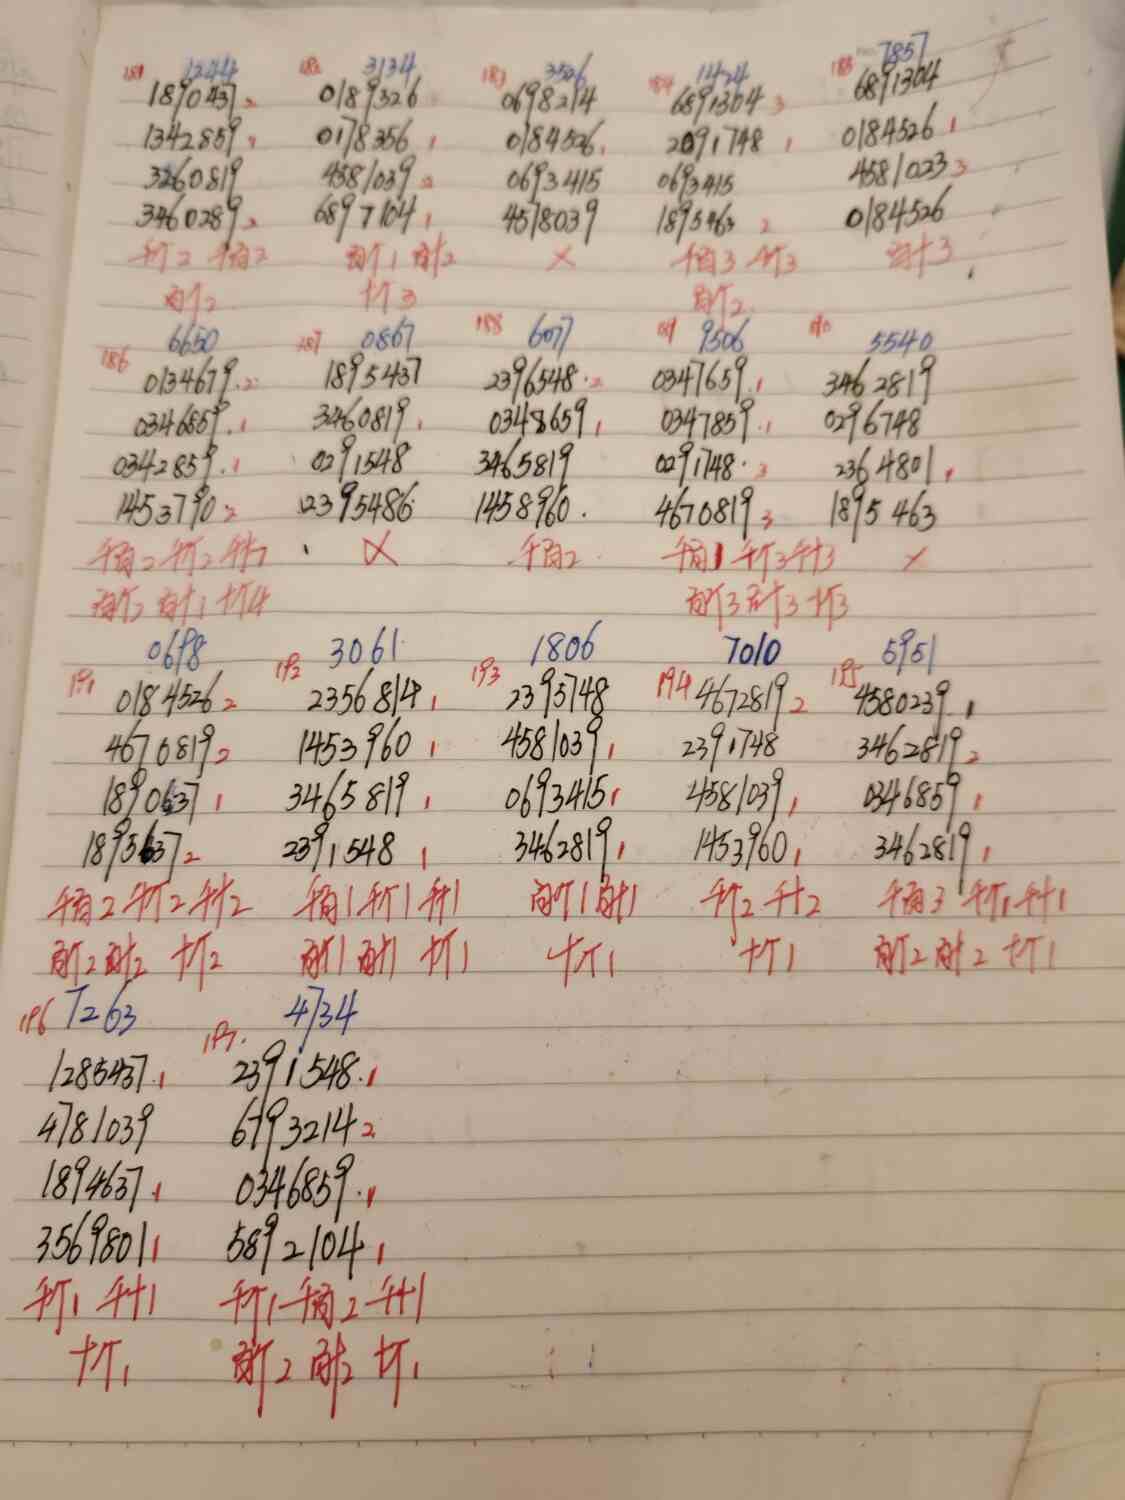 181 1244
1890437 2
1342859 2
3260819
3460289 2
千个2 千百2
百个2
182 3134
0189326
0178356 1
4581039 2
6897104 1
百个1 百十2
十个3
183 3526
0698214
0184526 1
0693415
4578039
×
184 1424
6891304 3
2091748 1
0693415
1895463 2
千百3 千个3
百个2
185 7857
6891304
0184526 1
4581023 3
0184526
百十3
186 6650
0134679.2
0346859.1
0342859.1
1453790 2
千百2 千个2 千十1
百个2 百十1 十个4
187 0867
1895437
3460819 1
0291548
2395486
×
188 6077
2396548.2
0348659 1
3465819
1458960.
千百2
189 9506
0347659 1
0347859.1
0291748.3
4670819 3
千百1 千个3 千十3
百个3 百十3 十个3
190 5540
3462819
0296748
2364801 1
1895463
×
191 0698
0184526 2
4670819 2
1890637 1
1895637 2
千百2 千个2 千十2
百个2 百十2 十个2
192 3061
2356814 1
1453960 1
3465819 1
2391548 1
千百1 千个1 千十1
百个1 百十1 十个1
193 1806
2395748
4581039 1
0693415 1
3462819 1
百个1 百十1
十个1
194 7010
4672819 2
2391748
4581039 1
1453960 1
千个2 千十2
十个1
195 5951
4580239 1
3462819 2
0346859 1
3462819 1
千百3 千个1 千十1
百个2 百十2 十个1
196 7263
1285437.1
4781039
1894637 1
3569801 1
千个1 千十1
十个1
197. 4734
2391548.1
6793214 2
0346859.1
5892104 1
千个1 千百2 千十1
百个2 百十2 十个1